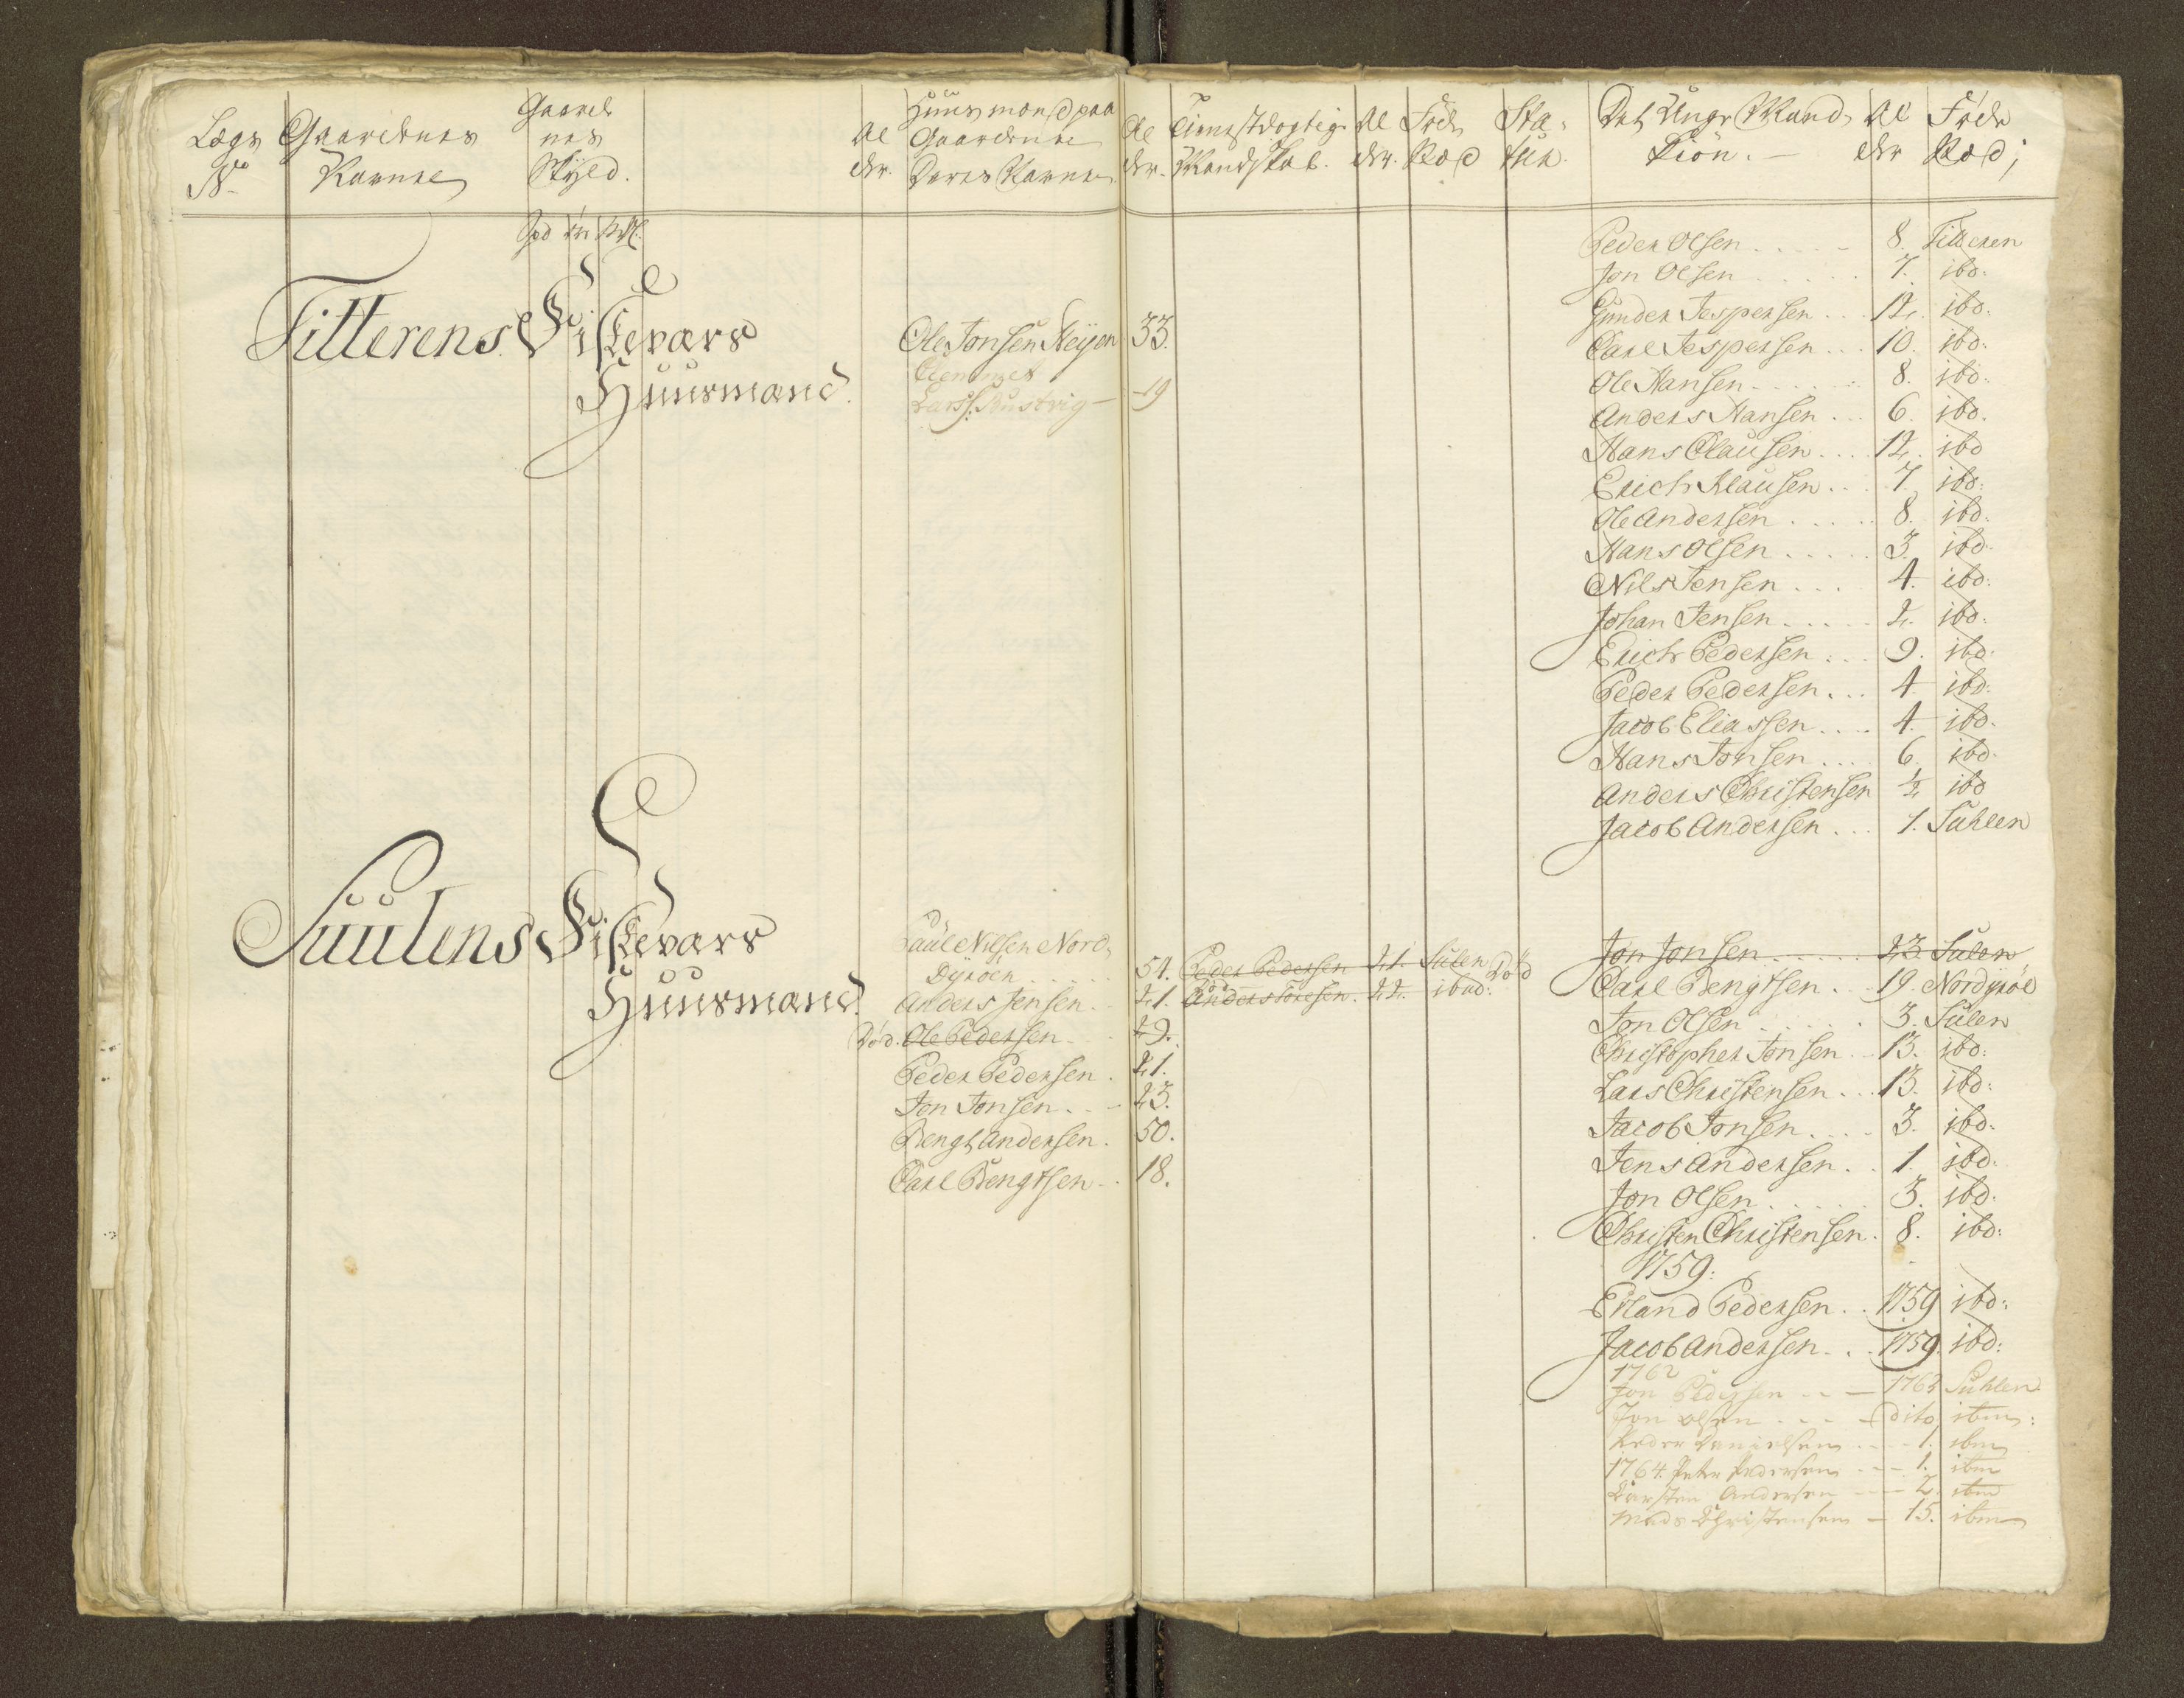 Lægs No
Gaardenes Navne
Gaardenes Skyld.
Alder.
Huusmænd paa Gaardene Deres Navne
Alder.
Tienstdygtig Mandskab.
Alder.
Föde Sted
Statur.
Det Unge Mandskiön.
Alder
Föde Sted;
Spd Ort Mrk.
Titterens Fiskeværs
Huusmænd.
Ole Jonsen Steyen 33.
Clemmet
Larss: Rustvig - 19
Peder Olsen 8. Titteren
Jon Olsen 7. ibd:
Gunder Jespersen 12. ibd:
Carl Jespersen 10. ibd:
Ole Hansen 8. ibd:
Anders Hansen 6. ibd.
Hans Clausen 12. ibd
Erich Klausen 7. ibd:
Ole Andersen 8. ibd:
Hans Olsen 3. ibd:
Nils Jensen 4. ibd:
Johan Jensen 2. ibd:
Erich Pedersen 9. ibd:
Peder Pedersen 4. ibd:
Jacob Eliassen 4. ibd.
Hans Jonsen 6. ibd:
Anders Christensen 1/2 ibd
Jacob Andersen 1. Suhlen
Suulens Fiskeværs
Huusmænd.
Paul Nilsen Nord
Dyröen 54.
Anders Jensen 21.
Död. Ole Pedersen 29.
Peder Pedersen 21.
Jon Jonsen 23.
Bengt Andersen 50.
Carl Bengtsen 18.
Peder Pedersen 21. Sulen Död
Anders Toresen. 22. ibid:
Jon Jonsen 23 Sulen
Carl Bengtsen 19. Nordyröe
Jon Olsen 3. Sulen
Christopher Jonsen 13. ibd:
Lars Christensen 13. ibd:
Jacob Jonsen 3. ibd.
Jens Andersen 1. ibd.
Jon Olsen 3. ibd.
Christen Christensen. 8. ibd:
1759:
Erland Pedersen 1759 ibd:
Jacob Andersen 1759. ibd:
1762
Jon Pedersen 1762 Suhlen
Jon Olsen dito ibm:
Peder Danielsen 1. ibm
1764. Peter Pedersen 1. ibm
Carsten Andersen 2. ibm
Mads Christensen 15. ibm